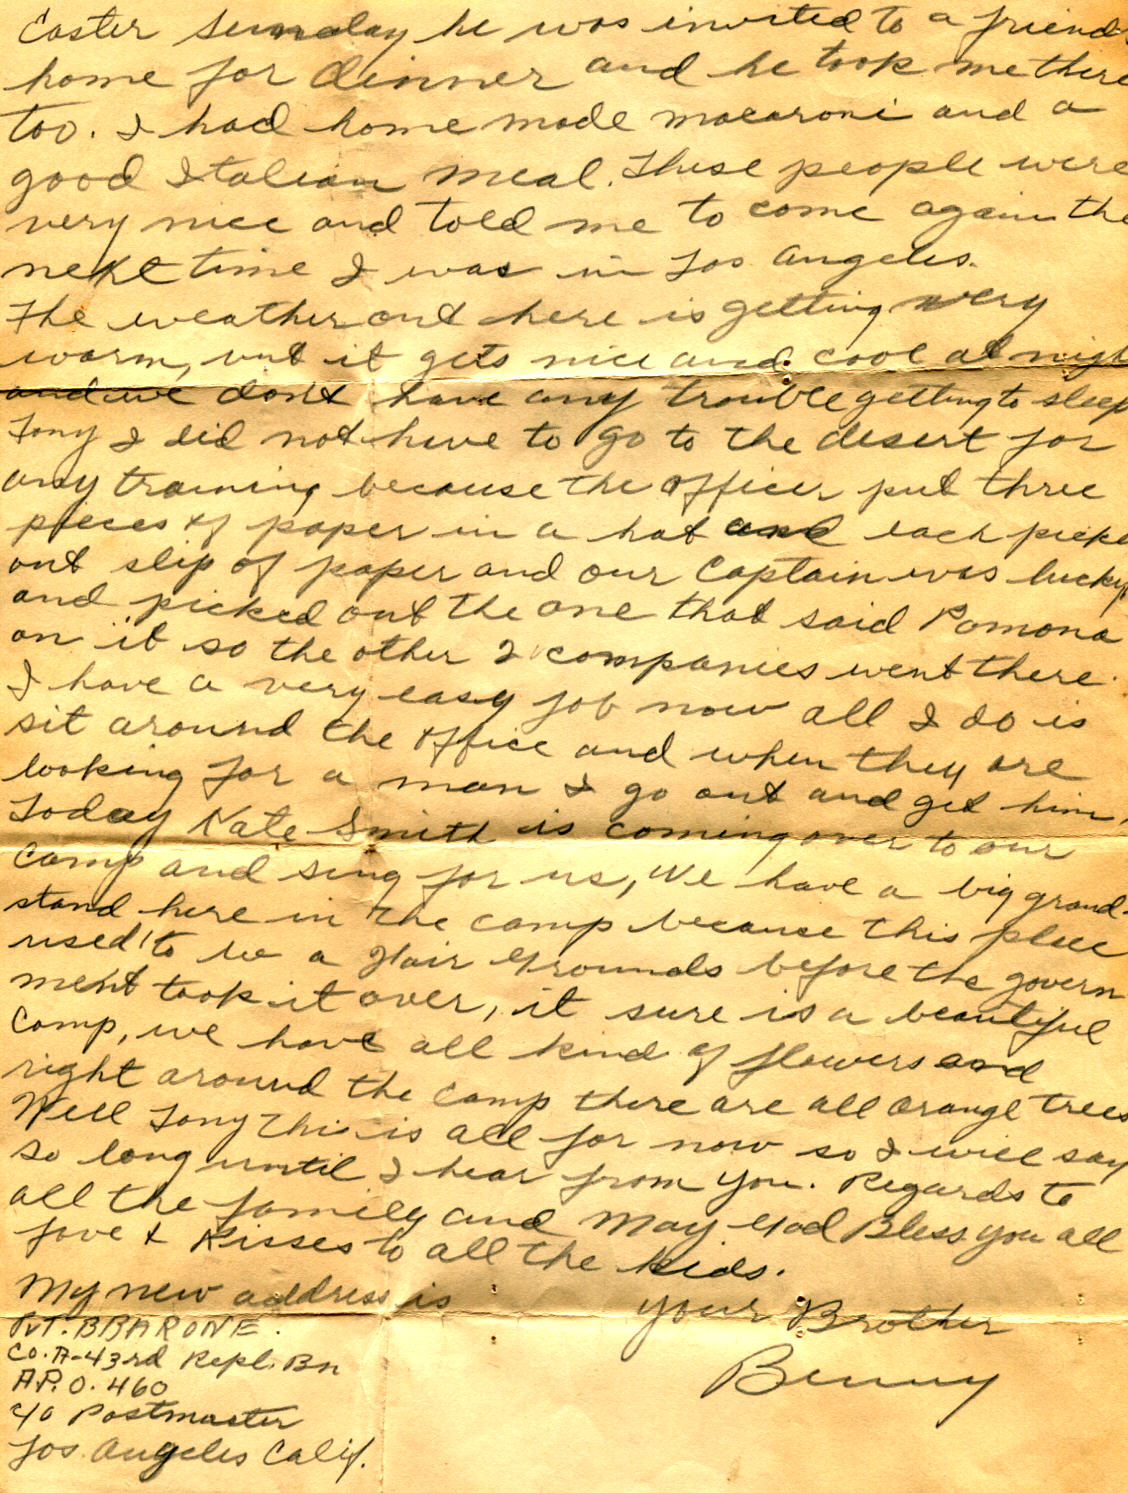 Easter Sunday he was invited to a friends
home for dinner and he took me there
too. I had home made macaroni and a
good Italian meal. These people were
very nice and told me to come again the
next time I was in Los Angeles.
The weather out here is getting very
warm, but it gets nice and cool at nigh
and we don't have any trouble getting to sleep
Tony I did not have to go to the desert for
any training because the officer put three
pieces of paper in a hat and each picke
out slip of paper and our Captain was lucky
and picked out the one that said Pomona
on it so the other 2 companies went there.
I have a very easy job now all I do is
sit around the office and when they are
looking for a man I go out and get him,
Today Kate Smith is coming over to our
camp and sing for us, We have a big grand-
stand here in the camp because this place
used to be a Fair Grounds before the govern
ment took it over, it sure is a beautiful
Camp, we have all kind of flowers and
right around the camp there are all orange trees
Well Tony this is all for now so I will say
so long until I hear from you. Regards to
all the family and May God Bless you all
Love & Kisses to all the kids.
My new address is
your Brother
Benny
Pvt. B BARONE.
Co. A-43rd Repl. Bn
A.P.O. 460
c/o Postmaster
Los Angeles Calif.